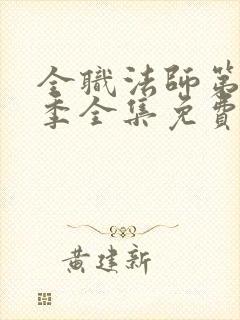 全職法師第
季全集免費
黄建新